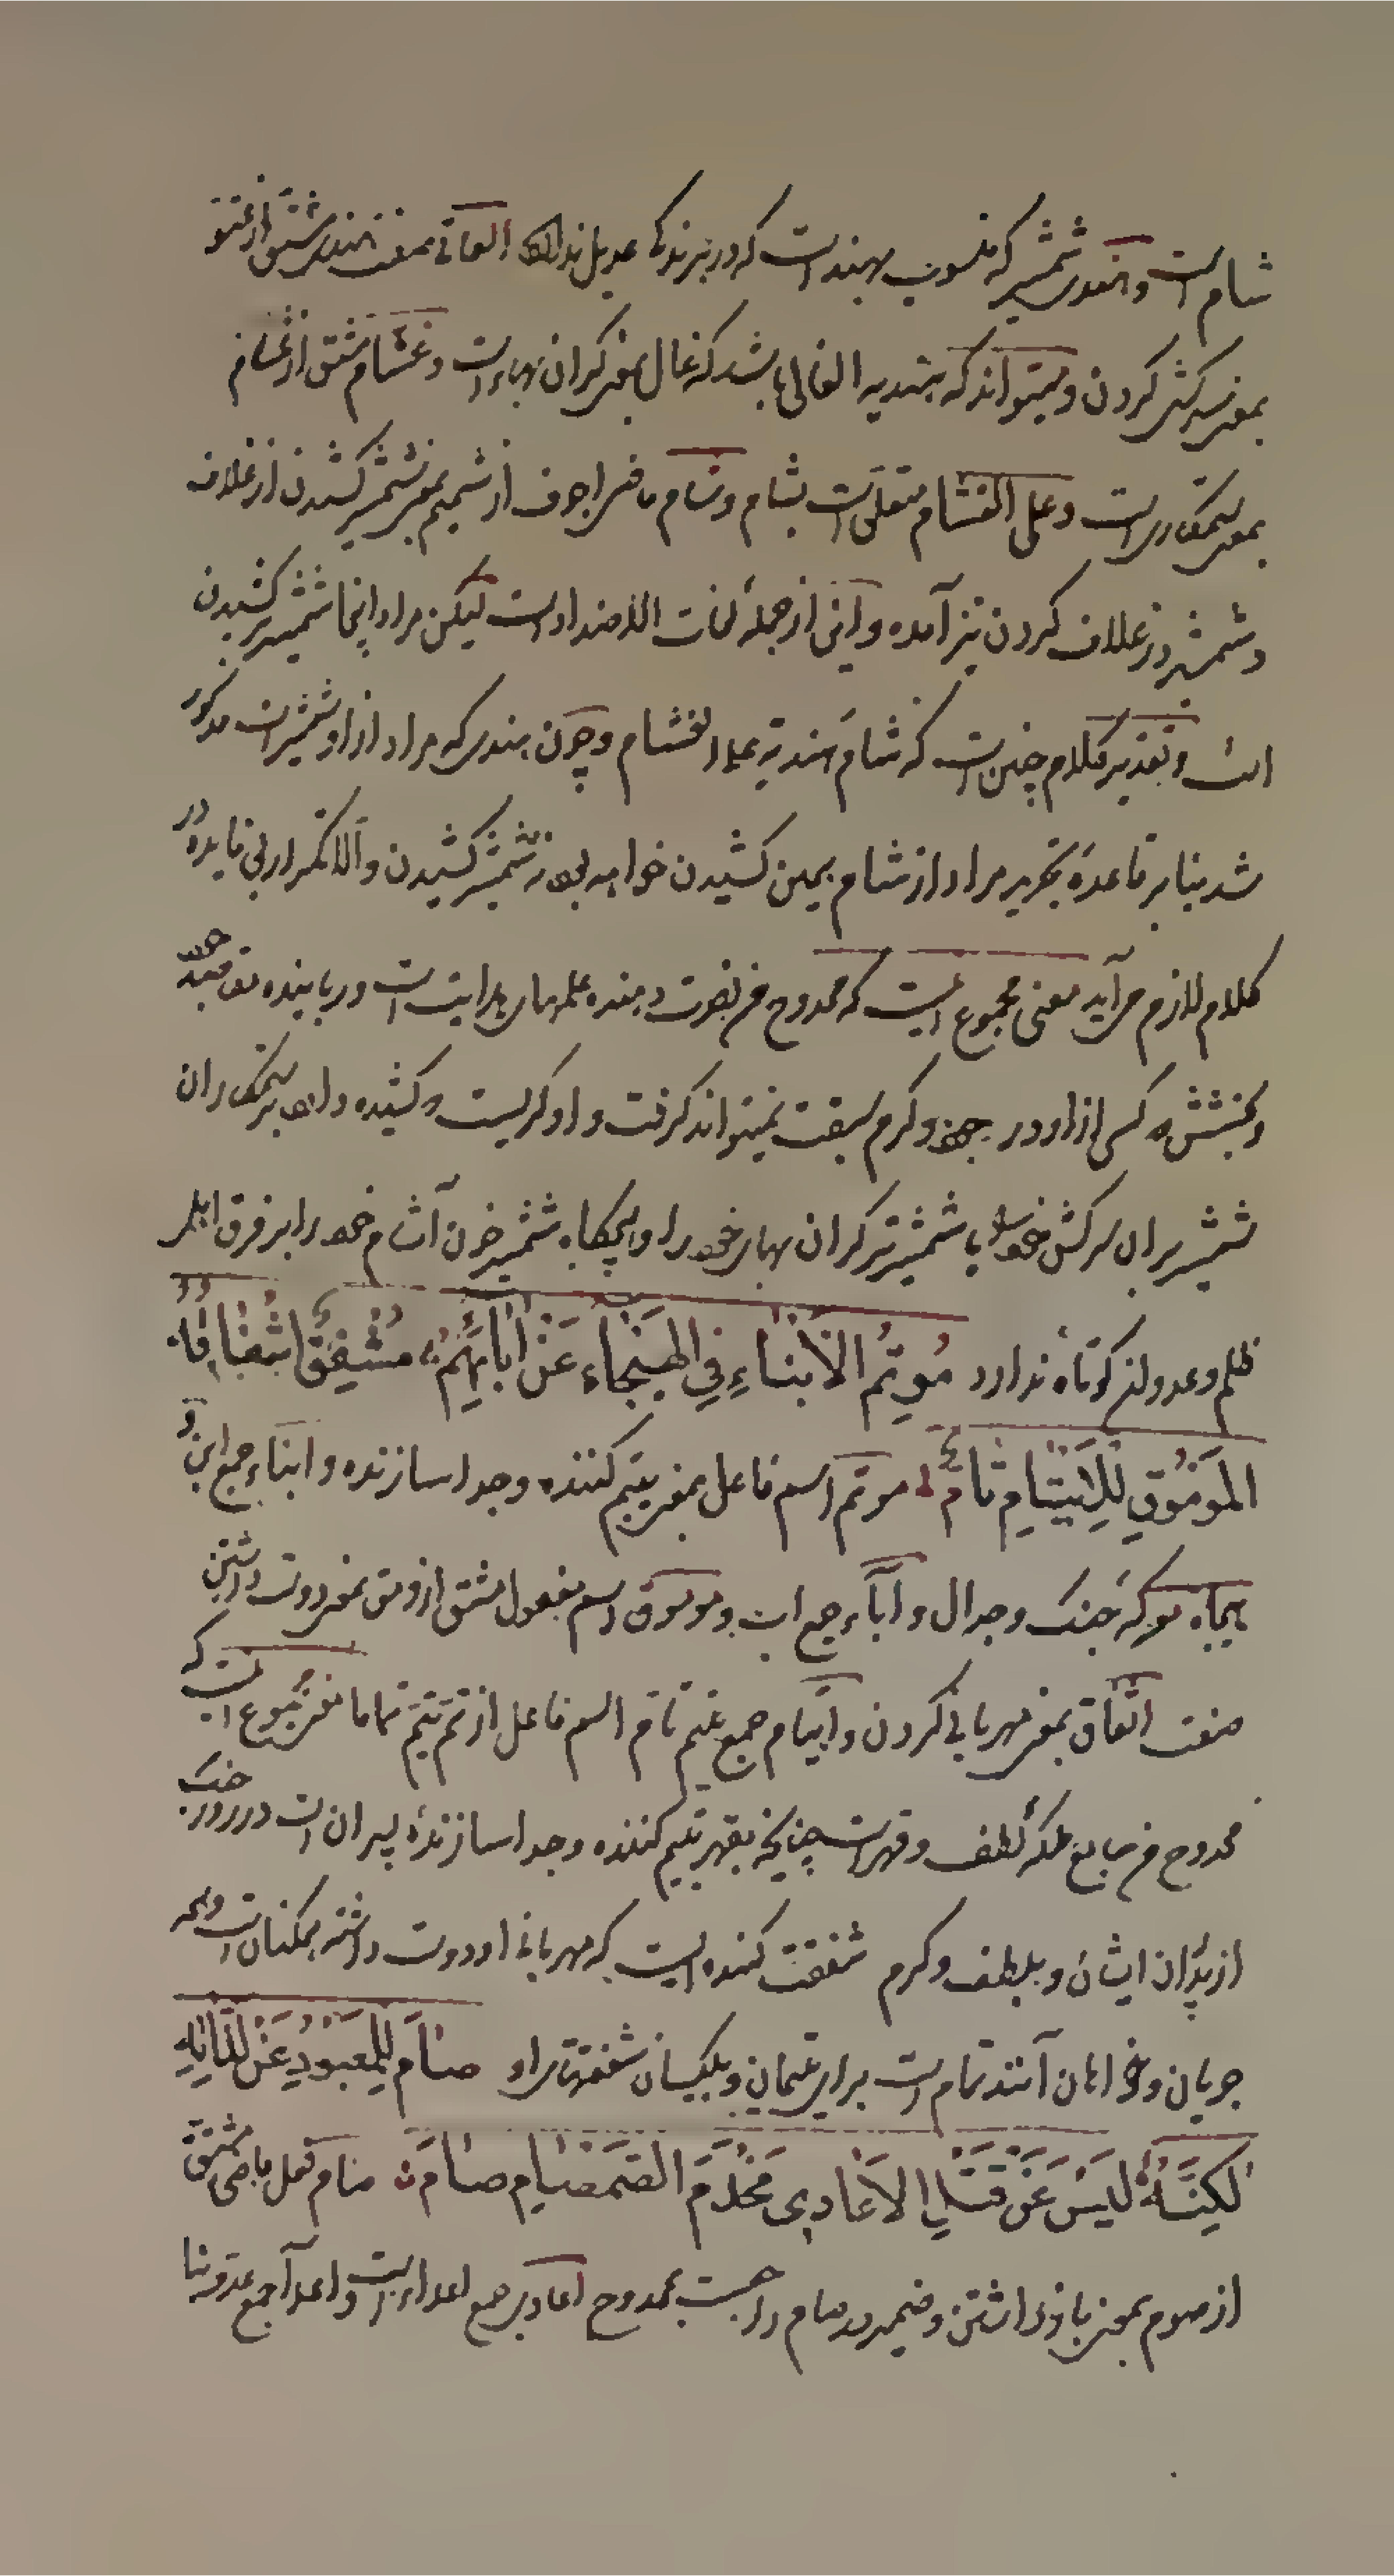 شام است و هندی شمشیر که منسوب بهند است که در برندگی عدیل ندارد العاتی صفت هندی مشتق از عتو
بمعنی سرکشی کردن و میتواند که هندیه الغالی باشد که غال بمعنی گران بهاء است و غشام مشتق از غشام
بمعنی ستمکاری است و علی الغشام متعلق است بشام و شام ماضی اجوف از شیم بمعنی شمشیر کشیدن از غلاف
و شمشیر در غلاف کردن نیز آمده و این از جمله لغات الاضداد است لیکن مراد اینجا شمشیر کشیدن
است و تقدیر کلام چنین است که شام هندیه علی الغشام و چون هندی که مراد از او شمشیر است مذکور
شد بنا بر قاعدهٔ تجرید مراد از شام همین کشیدن خواهد بود نه شمشیر کشیدن و الا تکرار بی فایده در
کلام لازم می آید معنی مجموع اینست که ممدوح من نصرت دهنده علمهای هدایت است و رباینده
و بخشش و کسی از او در جود و کرم سبقت نمیتواند گرفت و او کریست و کشیده دارد بر ستمکاران
شمشیر بران سرکش خود را یا شمشیر گران بهای خود را و هیچگاه شمشیر خون آشام خود را بر فرق اهل
ظلم و عدوان کوتاه ندارد مُوتِمُ الاَبناءِ فِي الهَيجاءِ عَن اٰبائِهِم مُشفِقٌ اشفاقُهُ
المَومُوقِ لِلاَيتامِ تامّ موتم اسم فاعل بمعنی یتیم کننده و جدا سازنده و ابناء جمع ابن و
هیجاء معرکه جنگ و جدال و آباء جمع اب و موموق اسم مفعول مشتق از ومق بمعنی دوست داشتن
صفت اشفاق بمعنی مهربانی کردن و ایتام جمع یتیم تام اسم فاعل از تمّ یتمّ تماما معنی مجموع اینست که
ممدوح من جامع ملکهٔ لطف و قهر است چنانچه بقهر یتیم کننده و جدا سازندهٔ پسران است در روز جنگ
از پدران ایشان و بلطف و کرم شفقت کننده ایست که مهربانی او دوست داشته همکنان است و همه
جویان و خواهان آنند تمام است برای یتیمان و بیکسان شفقتهای او صامَ لِلمَعبودِ عَن لذّاتِهِ
لٰكِنَّهُ لَيسَ عَن قَتلِ الاَعادي مِخذَمَ الصَّمصامِ صامَ صام فعل ماضی مشتق
از صوم بمعنی باز داشتن و ضمیر در صام راجعست بممدوح اعادی جمع اعداء است و اعدا جمع عدو